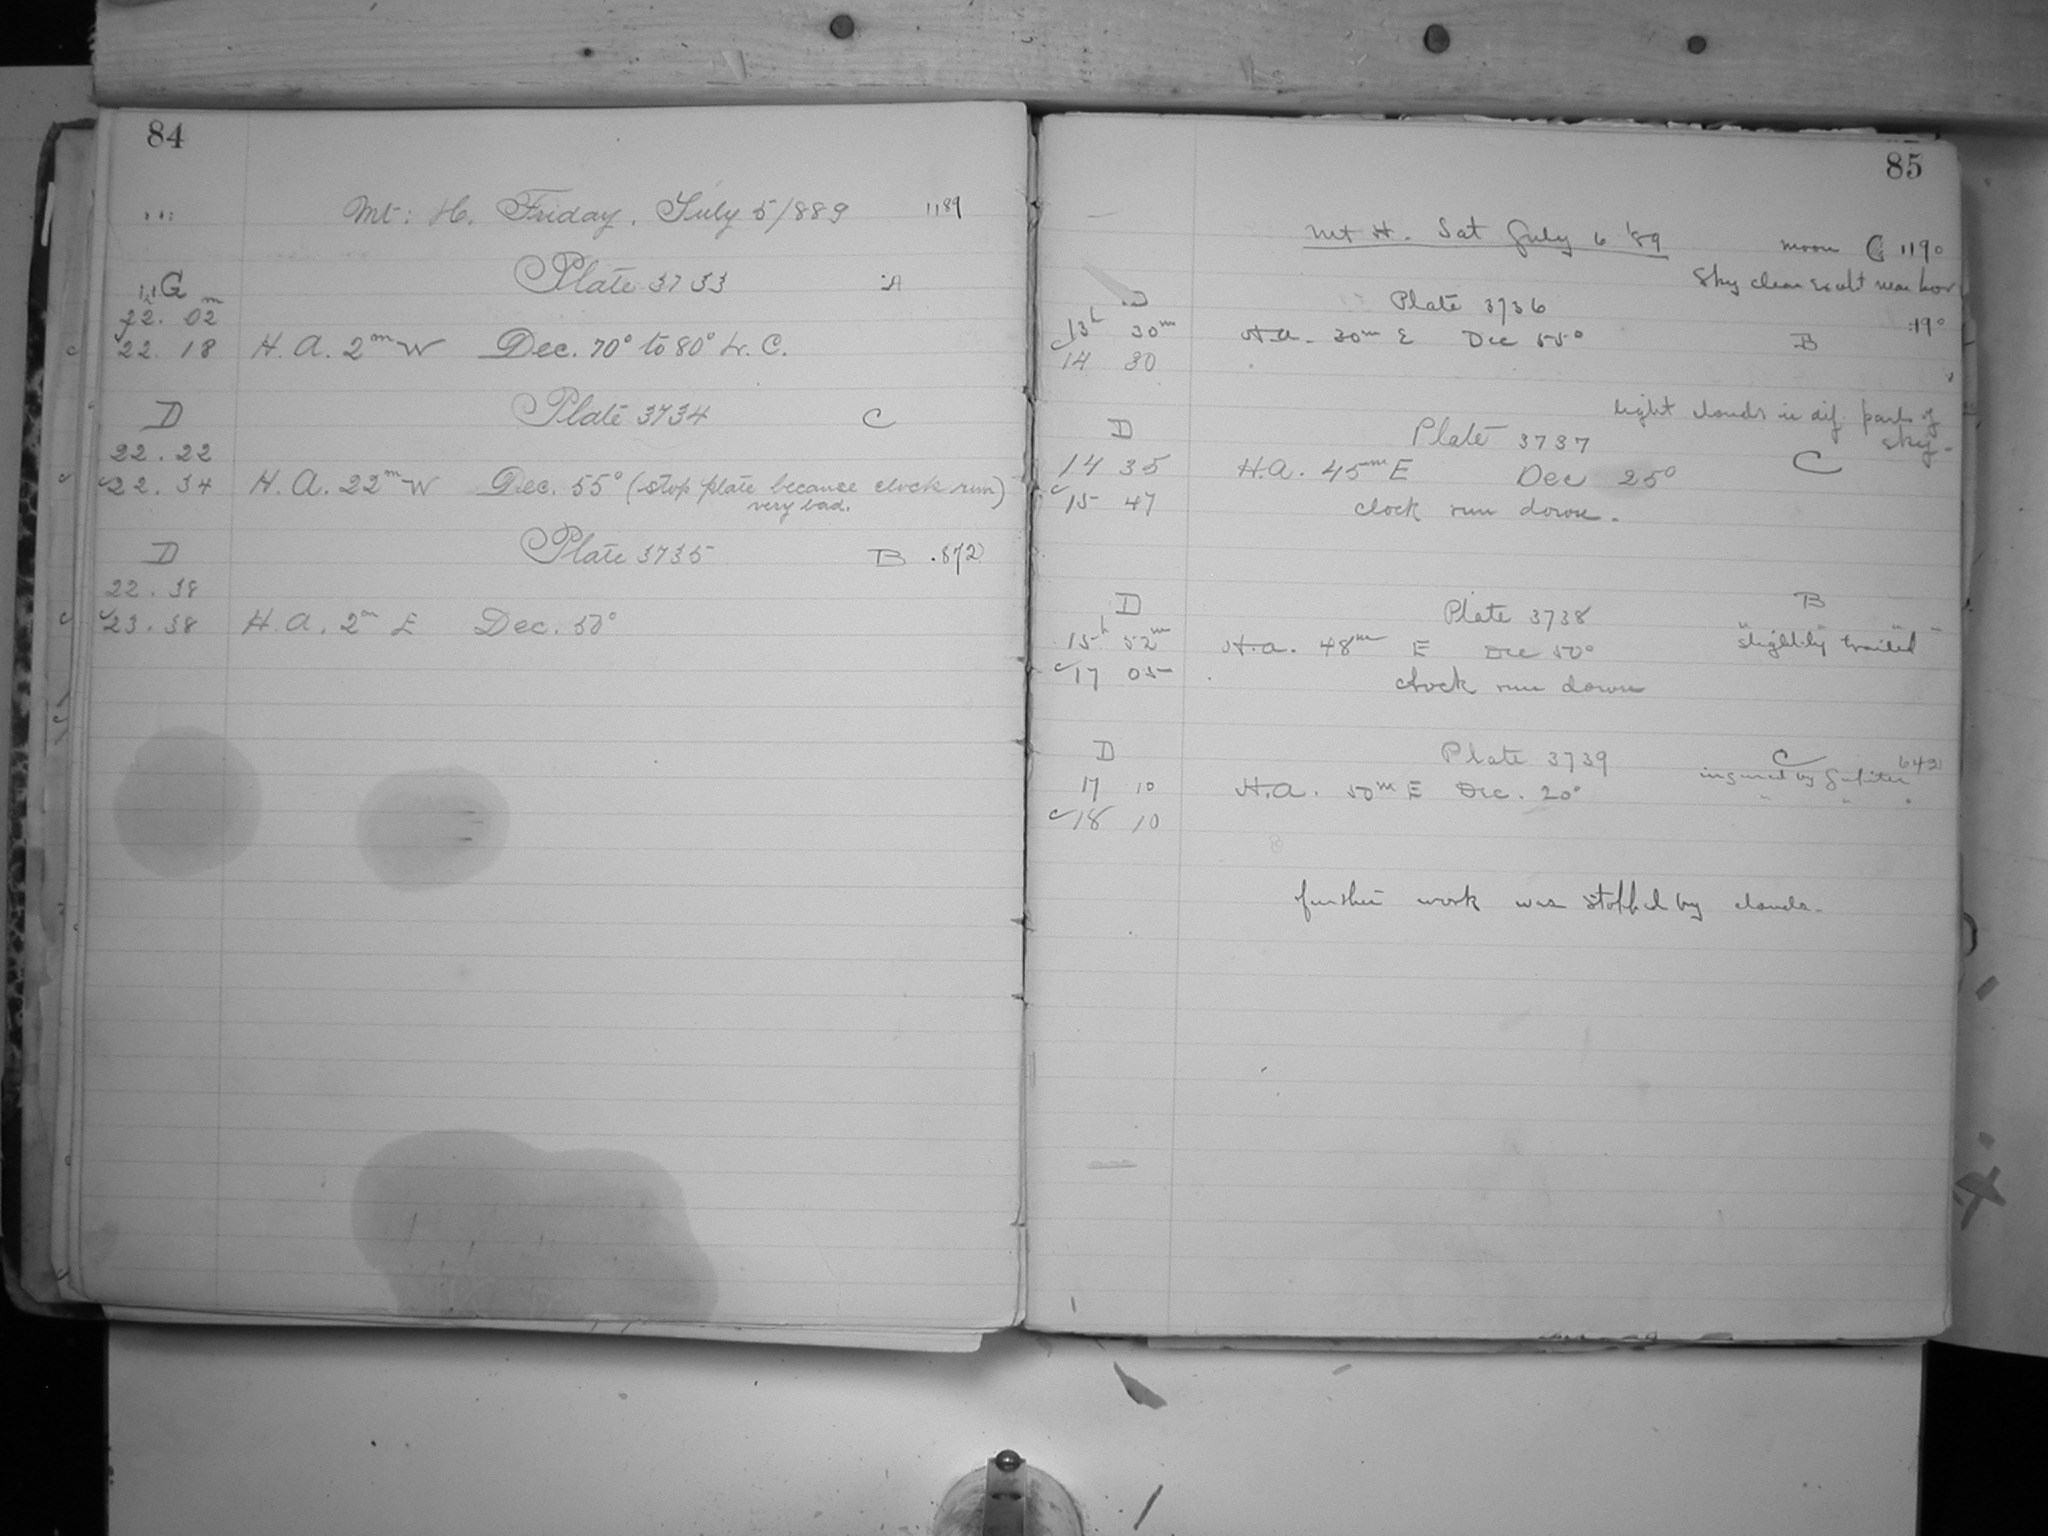 84
Mt: H. Friday, July 5/889 1189
Plate 3733 A
G
22. 02 m
22. 18 H. A. 2m W Dec. 70° to 80° L. C.
D Plate 3734 C
22. 22
22. 34 H. A. 22m W Dec. 55° (stop plate because clock run)
very bad.
D Plate 3735 B 872
22. 38
23. 38 H. A. 2m E Dec. 50°
85
Mt H. Sat July 6 '89 moon 1190
Sky clear except near hor
D Plate 3736
13h 30m H.A. 30m E Dec 55° B
14 30
light clouds in dif. parts of
sky
D Plate 3737 C
14 35 H.A. 45m E Dec 25°
15 47 clock run down.
D Plate 3738 B
15h 52m H.A. 48m E Dec 50° slightly trailed
17 05 clock run down
D Plate 3739 C 642
injured by Jupiter
17 10 H.A. 50m E Dec. 20°
18 10
further work was stopped by clouds.